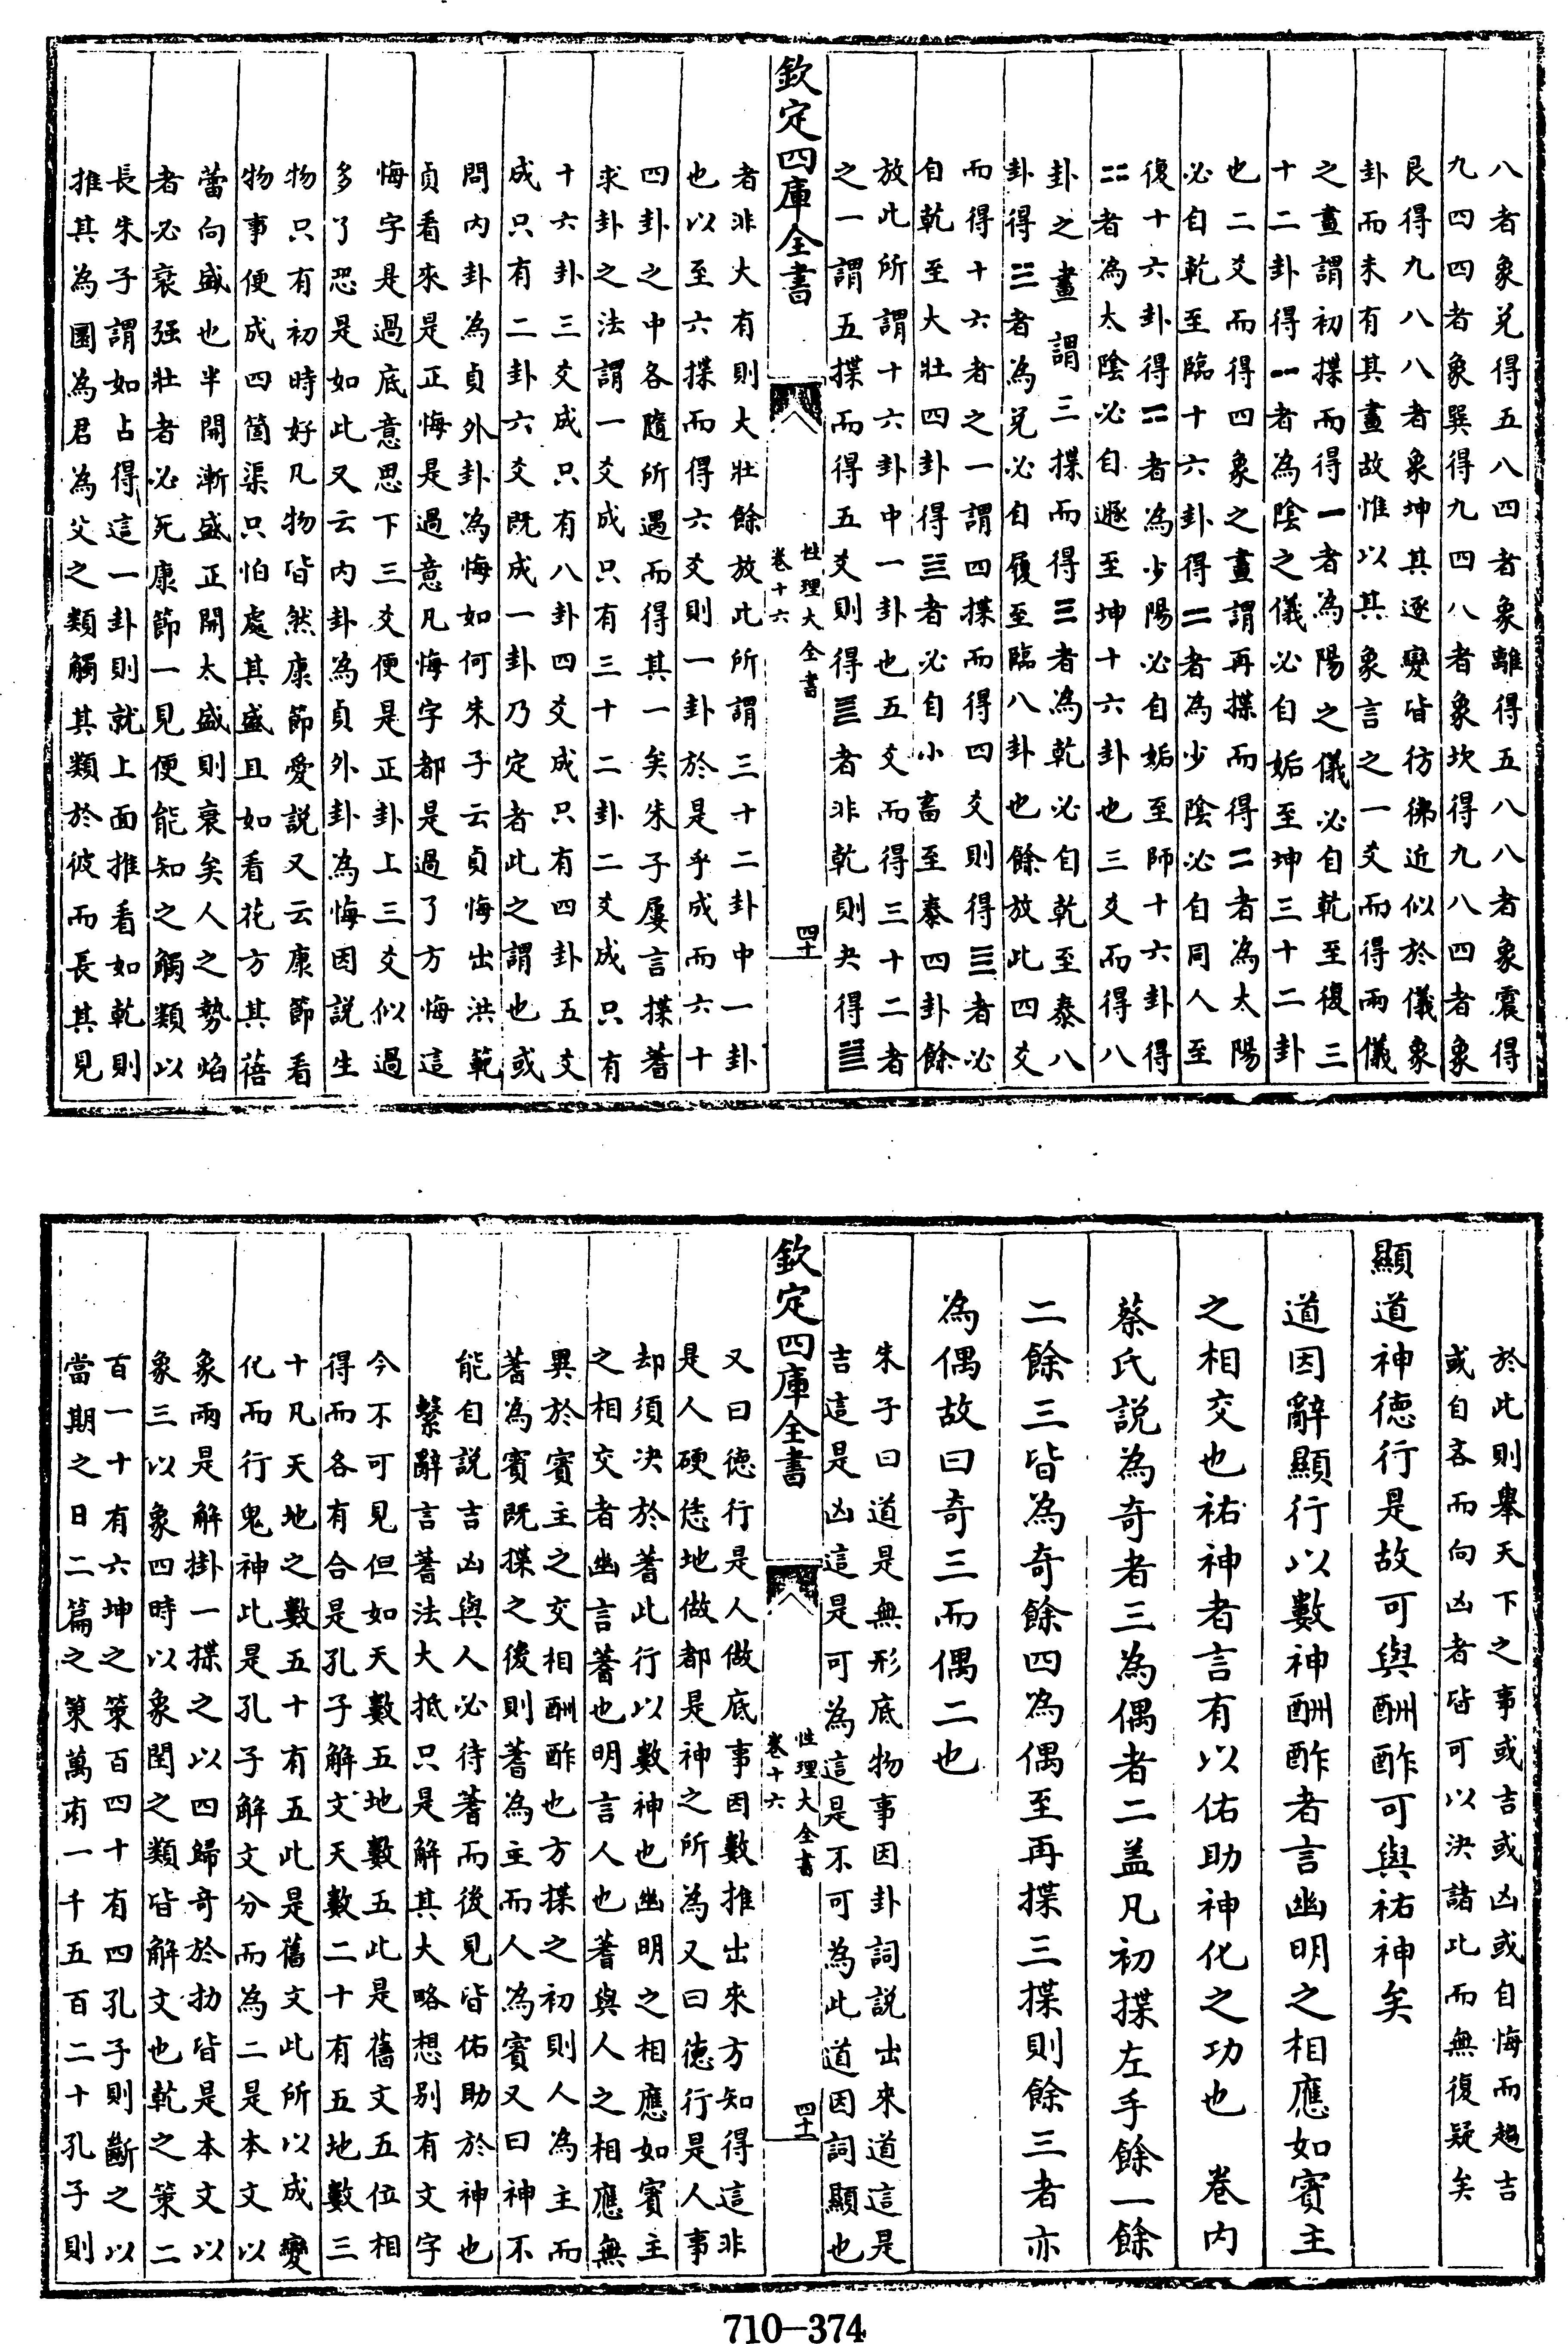 八者象兑得五八四者象離得五八八者象震得
九四四者象巽得九四八者象坎得九八四者象
艮得九八八者象坤其逐變皆彷彿近似於儀象
卦而未有其畫故惟以其象言之一爻而得兩儀
之畫謂初揲而得⚊者為陽之儀必自乾至復三
十二卦得⚋者為陰之儀必自姤至坤三十二卦
也二爻而得四象之畫謂再揲而得⚌者為太陽
必自乾至臨十六卦得⚍者為少陰必自同人至
復十六卦得⚎者為少陽必自姤至師十六卦得
⚏者為太陰必自遯至坤十六卦也三爻而得八
卦之畫謂三揲而得☰者為乾必自乾至泰八
卦得☱者為兑必自履至臨八卦也餘放此四爻
而得十六者之一謂四揲而得四爻則得者必
自乾至大壯四卦得者必自小畜至泰四卦餘
放此所謂十六卦中一卦也五爻而得三十二者
之一謂五揲而得五爻則得者非乾則夬得
欽定四庫全書
性理大全書
卷十六
四十
者非大有則大壯餘放此所謂三十二卦中一卦
也以至六揲而得六爻則一卦於是乎成而六十
四卦之中各隨所遇而得其一矣朱子屢言揲蓍
求卦之法謂一爻成只有三十二卦二爻成只有
十六卦三爻成只有八卦四爻成只有四卦五爻
成只有二卦六爻既成一卦乃定者此之謂也或
問内卦為貞外卦為悔如何朱子云貞悔出洪範
貞看來是正悔是過意凡悔字都是過了方悔這
悔字是過底意思下三爻便是正卦上三爻似過
多了恐是如此又云内卦為貞外卦為悔因説生
物只有初時好凡物皆然康節愛説又云康節看
物事便成四箇渠只怕處其盛且如看花方其蓓
蕾向盛也半開漸盛正開太盛則衰矣人之勢焰
者必衰强壯者必死康節一見便能知之觸類以
長朱子謂如占得這一卦則就上面推看如乾則
推其為圜為君為父之類觸其類於彼而長其見
於此則舉天下之事或吉或凶或自悔而趨吉
或自吝而向凶者皆可以決諸此而無復疑矣
顯道神徳行是故可與酬酢可與祐神矣
道因辭顯行以數神酬酢者言幽明之相應如賓主
之相交也祐神者言有以佑助神化之功也　卷内
蔡氏説為奇者三為偶者二盖凡初揲左手餘一餘
二餘三皆為奇餘四為偶至再揲三揲則餘三者亦
為偶故曰奇三而偶二也
朱子曰道是無形底物事因卦詞説出來道這是
吉這是凶這是可為這是不可為此道因詞顯也
欽定四庫全書
性理大全書
卷十六
四十一
又曰徳行是人做底事因數推出來方知得這非
是人硬恁地做都是神之所為又曰徳行是人事
却須決於蓍此行以數神也幽明之相應如賓主
之相交者幽言蓍也明言人也蓍與人之相應無
異於賓主之交相酬酢也方揲之初則人為主而
蓍為賓既揲之後則蓍為主而人為賓又曰神不
能自説吉凶與人必待蓍而後見皆佑助於神也
繫辭言蓍法大抵只是解其大略想别有文字
今不可見但如天數五地數五此是舊文五位相
得而各有合是孔子解文天數二十有五地數三
十凡天地之數五十有五此是舊文此所以成變
化而行鬼神此是孔子解文分而為二是本文以
象兩是解掛一揲之以四歸奇於扐皆是本文以
象三以象四時以象閏之類皆解文也乾之策二
百一十有六坤之策百四十有四孔子則斷之以
當期之日二篇之策萬有一千五百二十孔子則
710—374